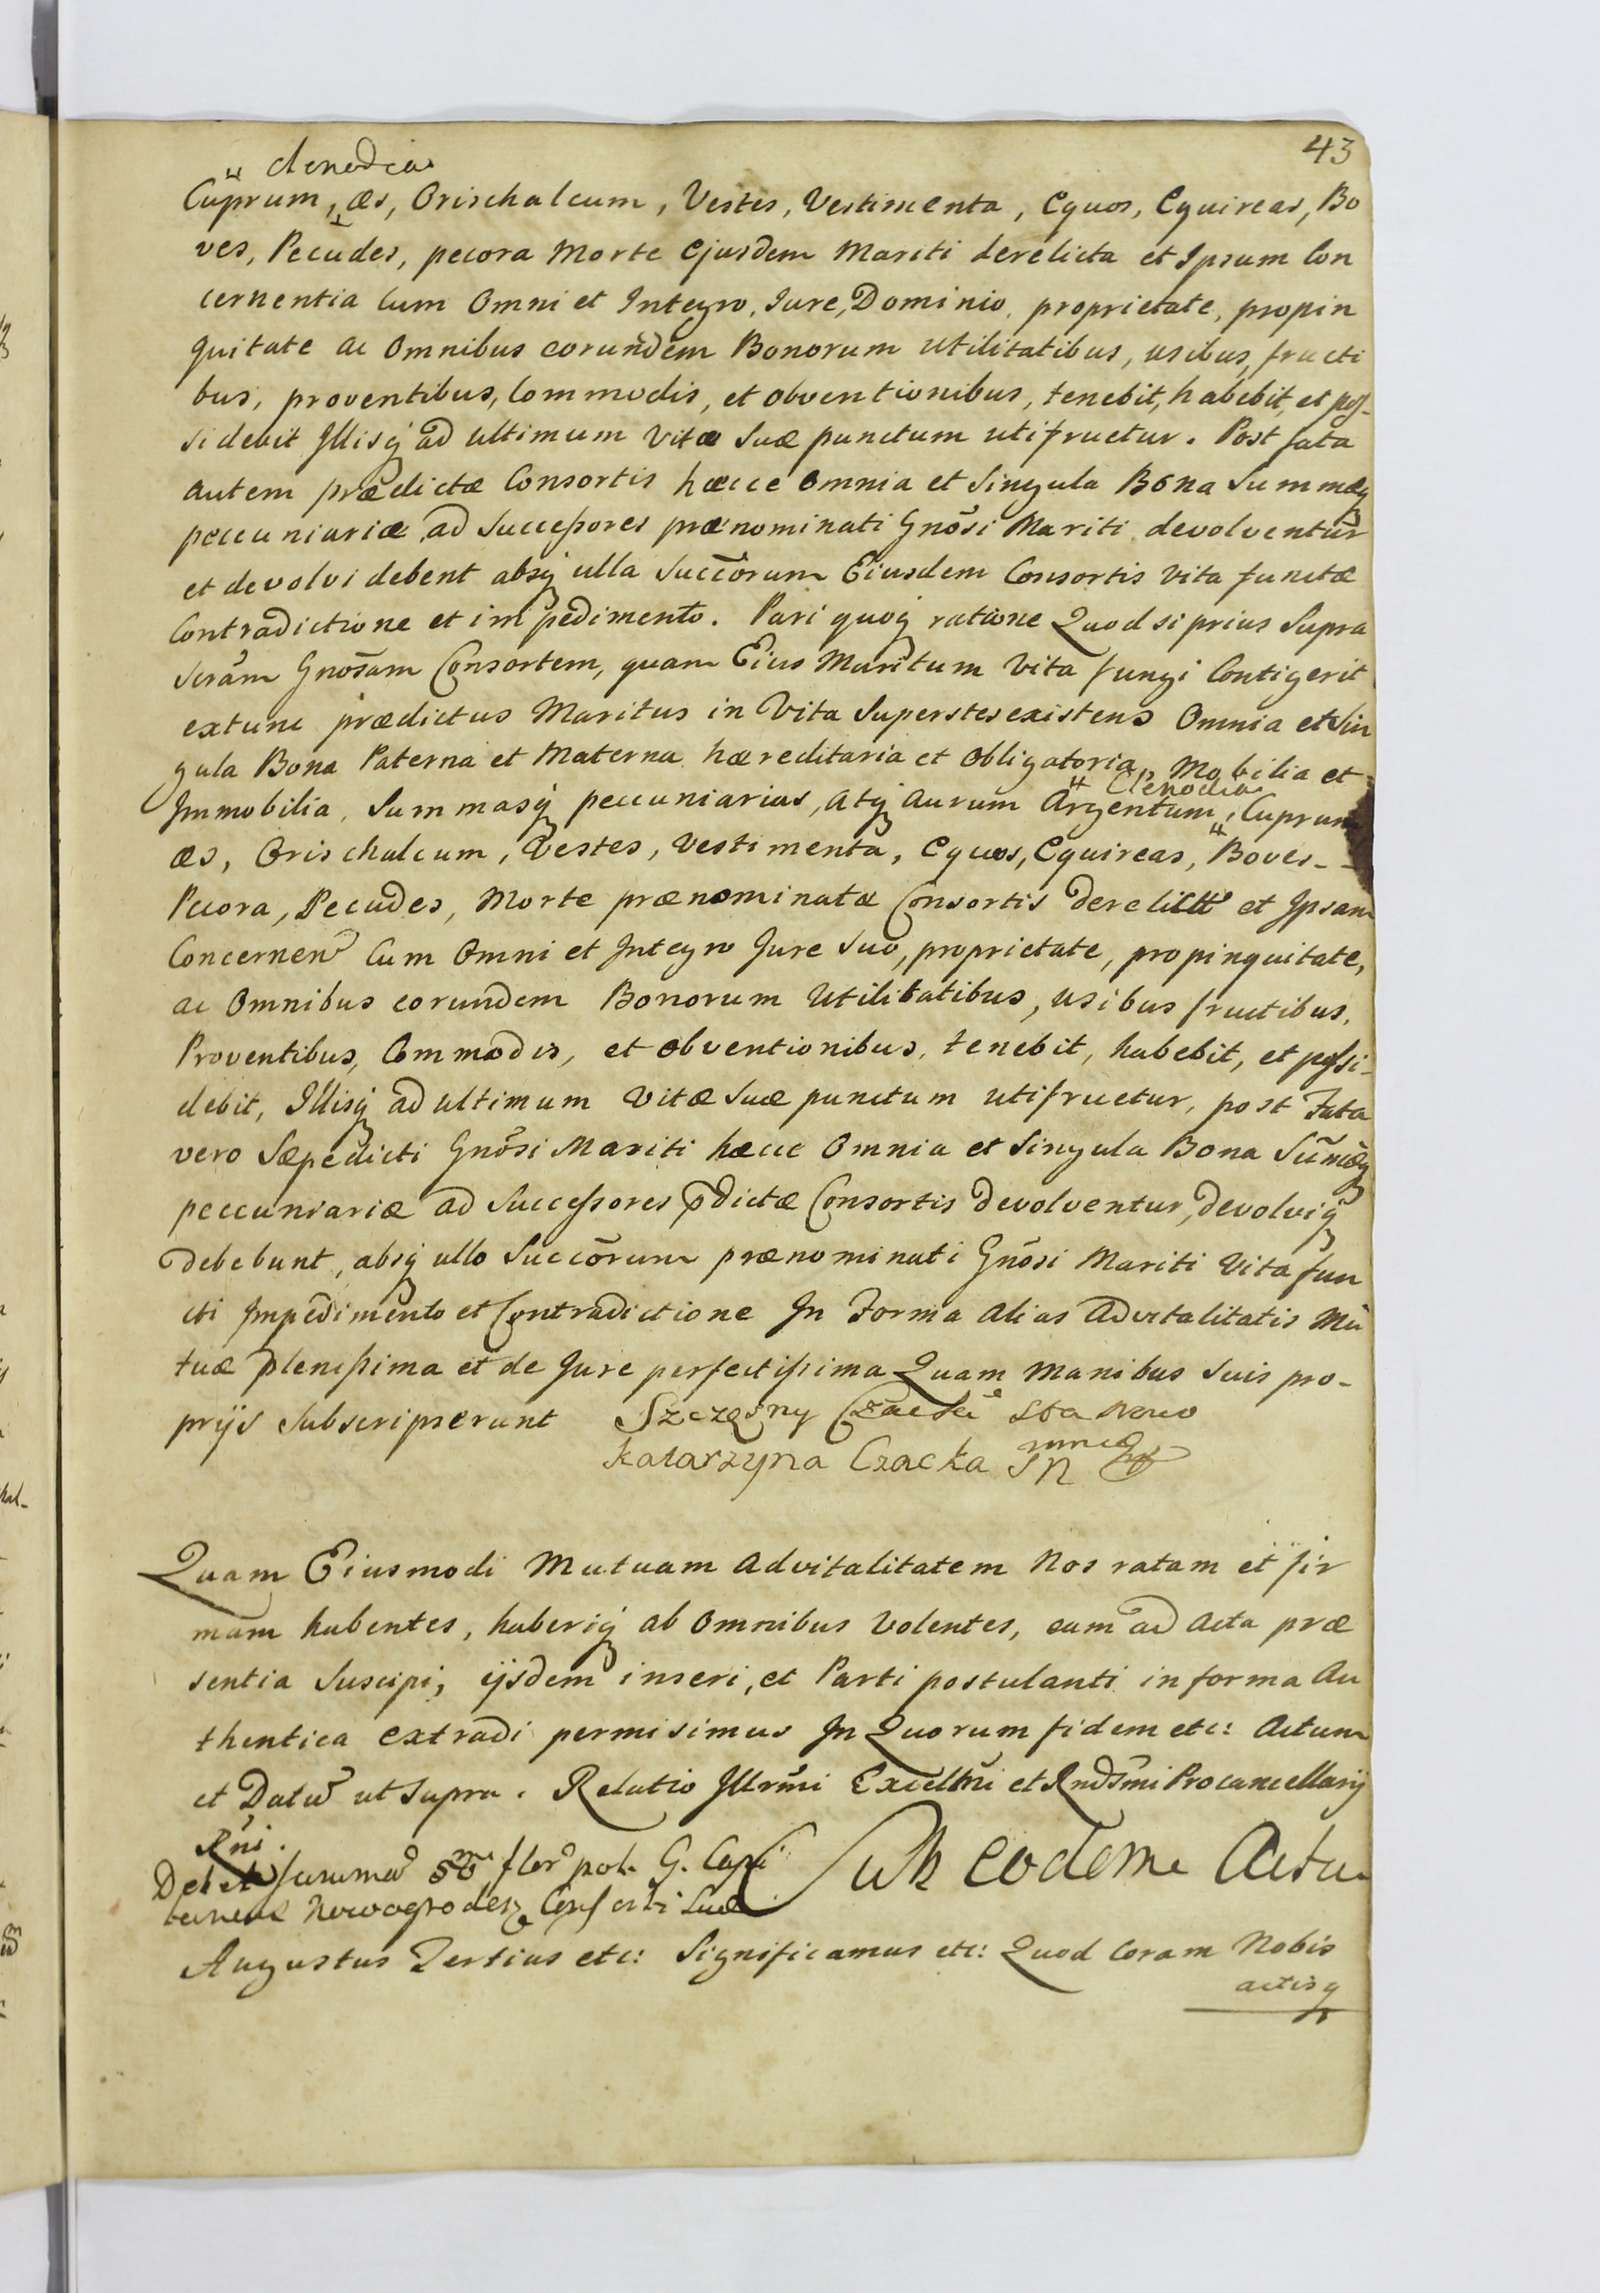 43
Clenodia
Cuprum, æs, Orischalcum, Vestes, Vestimenta, Equos, Equireas, Bo
ves, Pecudes, pecora Morte Ejusdem Mariti derelicta et Ipsum Con
cernentia Cum Omni et Integro, Iure, Dominio, proprietate, propin
quitate ac Omnibus eorundem Bonorum Utilitatibus, usibus, fructi
bus, proventibus, Commodis, et obventionibus, tenebit, habebit, et pos-
sidebit Illisq ad ultimum vitæ Suæ punctum utifruetur. Post fata
autem prædictæ Consortis hæcce Omnia et Singula Bona Summæq
peccuniariæ ad Successores prænominati Gnosi Mariti devolventur
et devolvi debent absq ulla Succorum Eiusdem Consortis vita functæ
Contradictione et impedimento. Pari quoq ratione Quod si prius Supra
scram Gnosam Consortem, quam Eius Maritum Vita fungi Contigerit
extunc prædictus Maritus in Vita Superstes existens Omnia et Sin
gula Bona Paterna et Materna hæreditaria et Obligatoria, Mobilia et
Clenodia
Immobilia, Summasq peccuniarias, Atq Aurum Argentum, Cuprum
æs, Orischalcum, Vestes, Vestimenta, Equos, Equireas, Boves
Pecora, Pecudes, Morte prænominatæ Consortis derelicta et Ipsam
Concernen Cum Omni et Integro Jure Suo, proprietate, propinquitate,
ac Omnibus eorundem Bonorum Utilitatibus, usibus fructibus,
Proventibus, Commodis, et obventionibus, tenebit, habebit, et possi-
debit, Illisq ad ultimum Vitæ Suæ punctum utifruetur, post Fata
vero Sæpedicti Gnosi Mariti hæcce Omnia et Singula Bona Sum̃æq
peccuniariæ ad Successores pdictæ Consortis devolventur, devolviq
debebunt, absq ullo Succorum prænominati Gnosi Mariti Vita fun
cti Impedimento et Contradictione In Forma alias Advitalitatis Mu
tuæ plenissima et de Jure perfectissima Quam Manibus Suis pro-
prijs Subscripserunt Szczęsny Czacki
Katarzyna Czacka
Quam Eiusmodi Mutuam Advitalitatem Nos ratam et fir
mam habentes, haberiq ab Omnibus Volentes, eam ad Acta præ
sentia Suscipi, ijsdem inseri, et Parti postulanti in forma Au
thentica extradi permisimus In Quorum fidem etc: Actum
et Datũ ut Supra. Relatio Illrmi Excellmi et Rndsmi Procancellarij
Rni.
Debet summa flor pol. G. Capi Sub eodem Actu
Nowogrodeń Consorti Suæ
Augustus Tertius etc: Significamus etc: Quod Coram Nobis
actisq